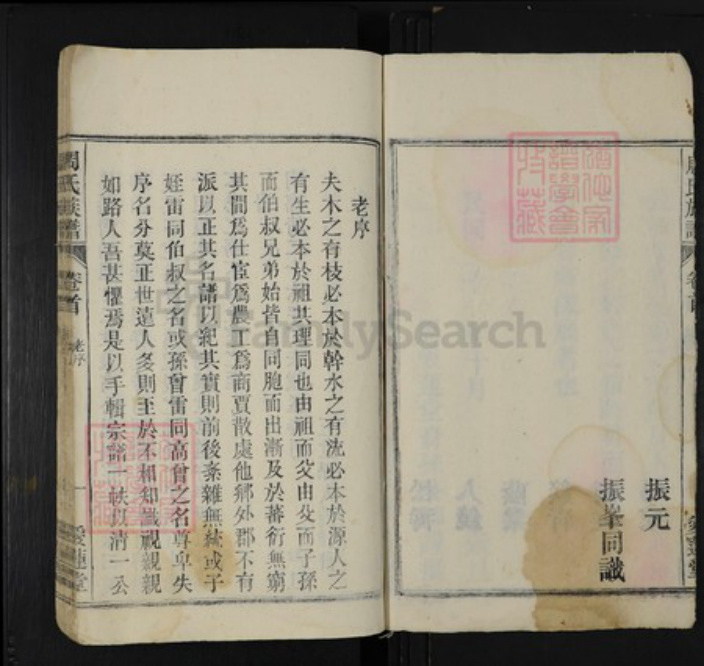 振元
振峯同識
愛蓮堂
老序
夫木之有枝必本於幹水之有流必本於源人之
有生必本於祖其理同也由祖而父由父而子孫
而伯叔兄弟始皆自同胞而出漸及於蕃衍無窮
其間爲仕宦爲農工爲商賈散處他鄉外郡不有
派以正其名譜以紀其實則前後紊雜無統或子
姪雷同伯叔之名或孫曾雷同高曾之名尊卑失
序名分莫正世遠人多則至於不相知識視親親
如路人吾甚懼焉是以手輯宗譜一帙以清一公
周氏族譜
卷首
老序
一
愛蓮堂
FamilySearch